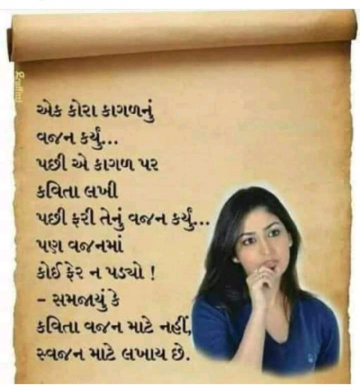 એક કોરા કાગળનું
વજન કર્યું...
પછી એ કાગળ પર
કવિતા લખી
પછી ફરી તેનું વજન કર્યું...
પણ વજનમાં
કોઈ ફેર ન પડ્યો !
– સમજાયું કે
કવિતા વજન માટે નહીં,
સ્વજન માટે લખાય છે.